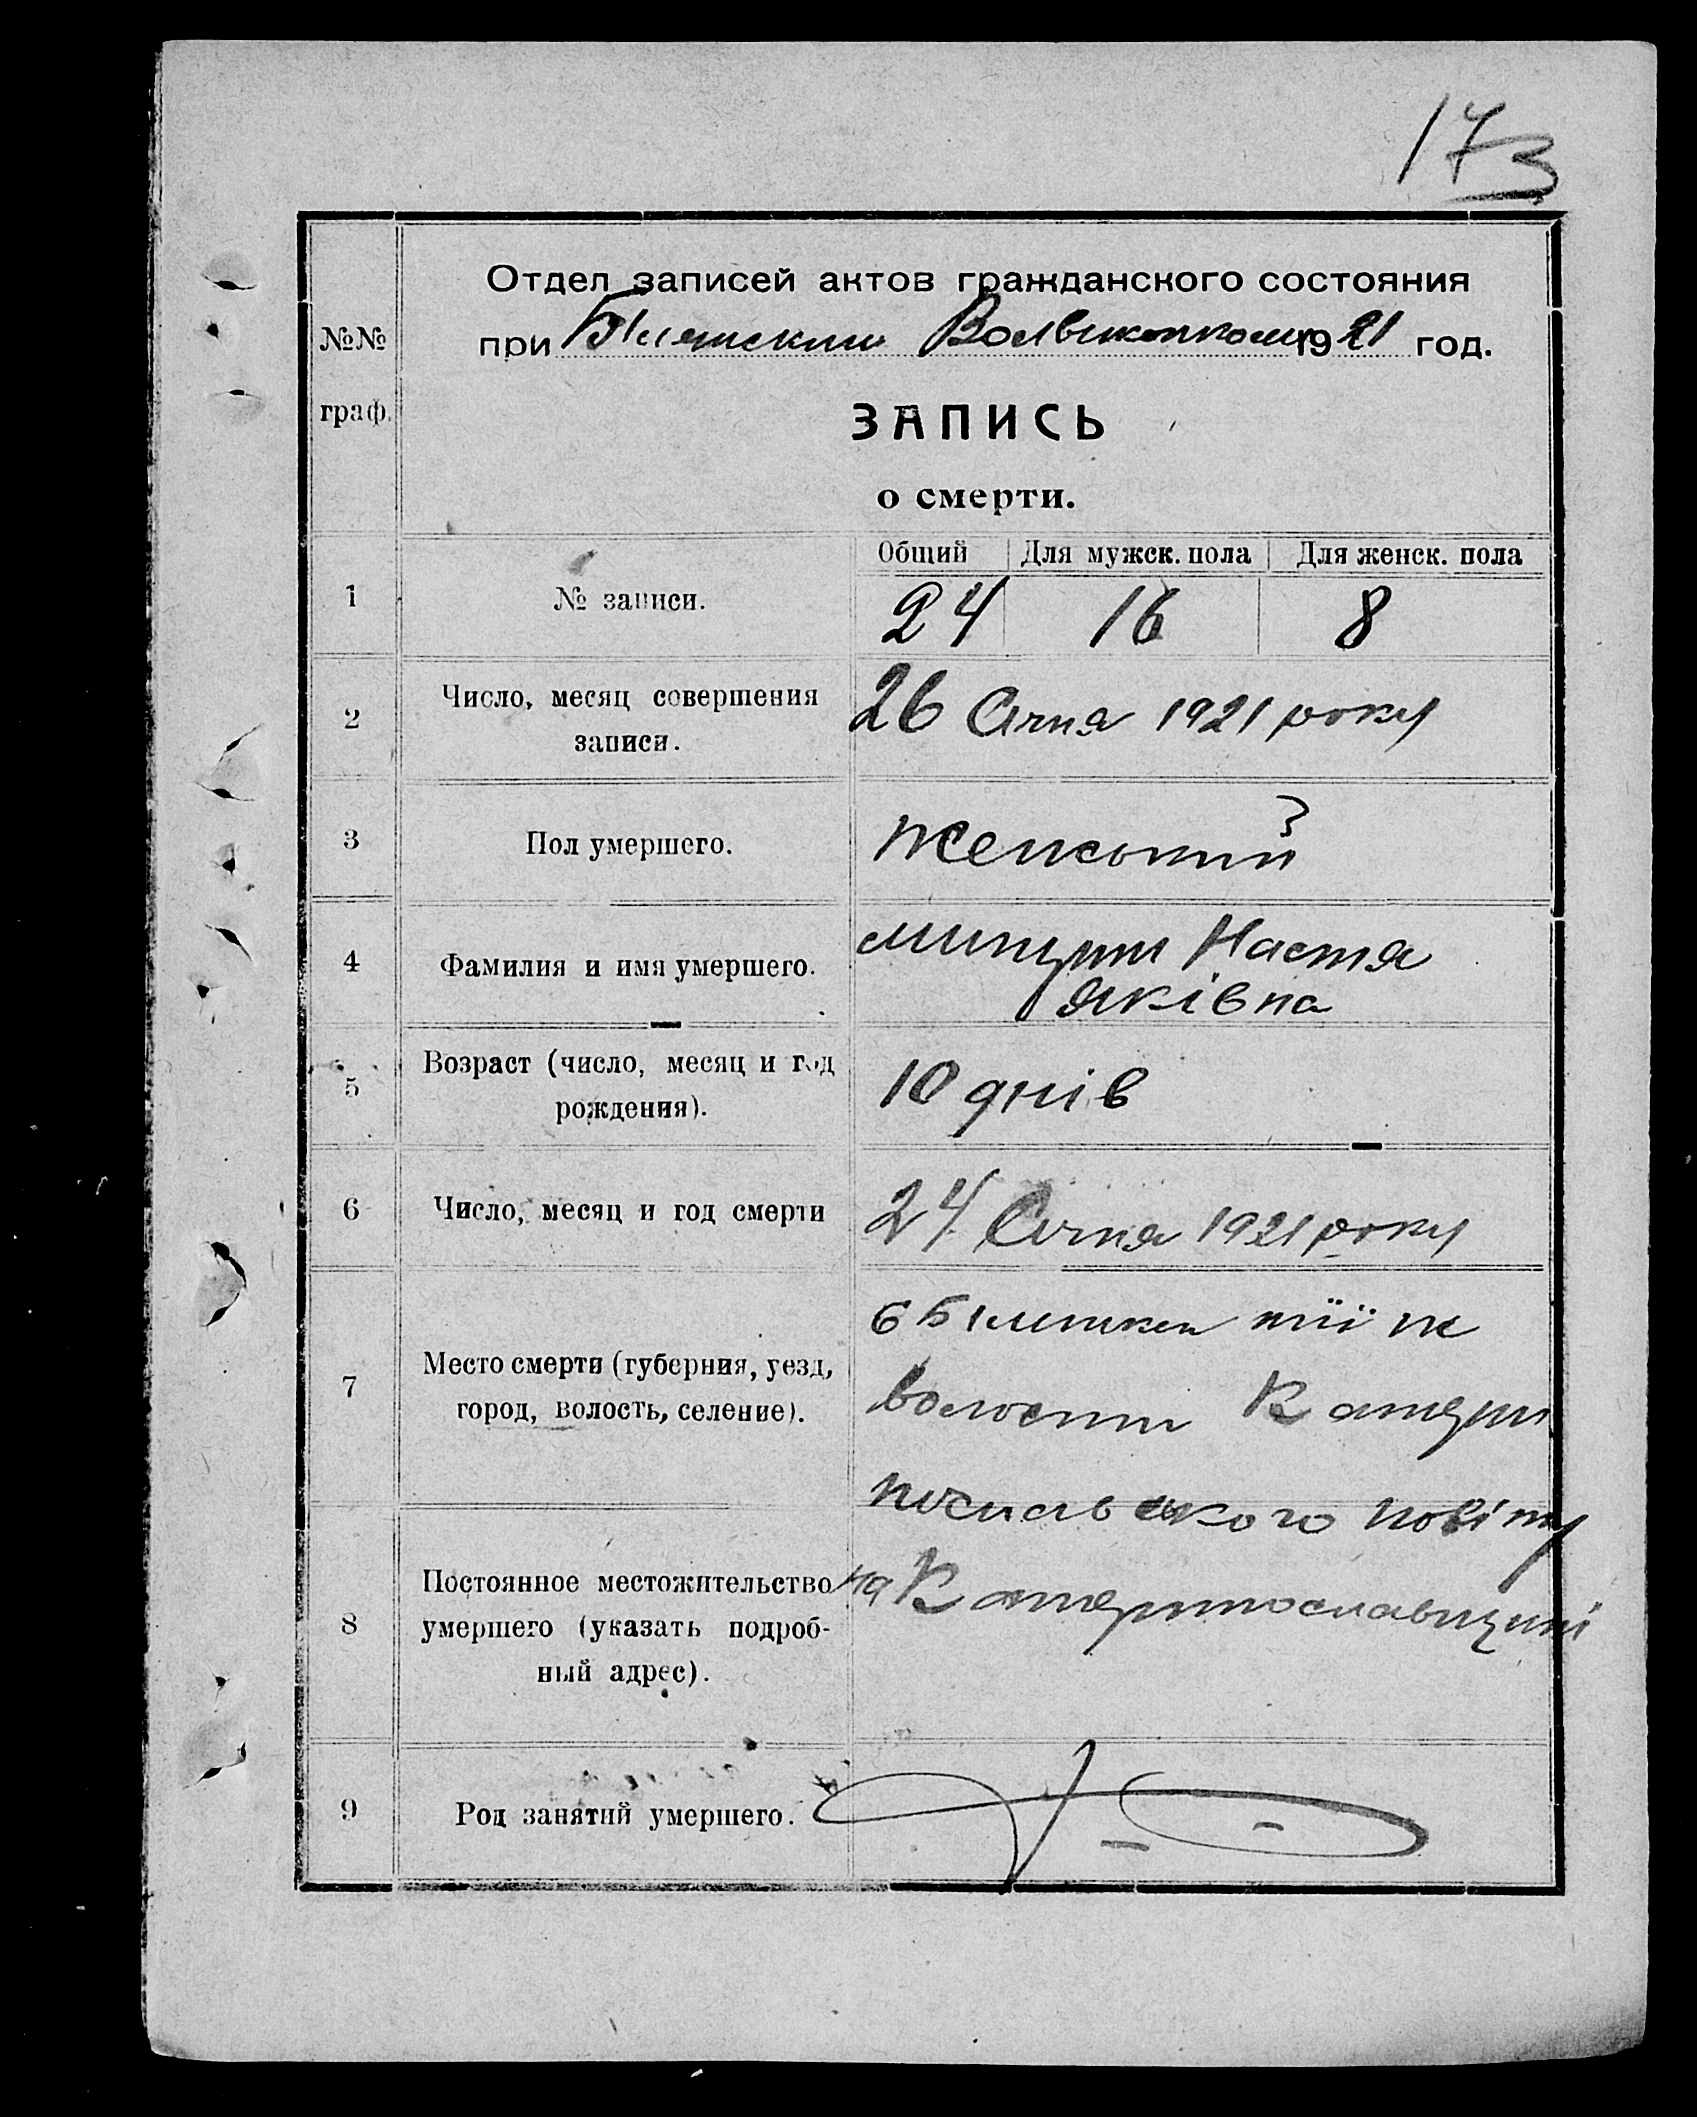 173
Отдел записей актов гражданского состояния
при Волвиконкомі 1921 год.
№№
граф.
ЗАПИСЬ
о смерти.
Общий Для мужск. пола Для женск. пола
1 № записи. 24 16 8
2 Число, месяц совершения
записи.
26 Січня 1921 року
3 Пол умершего. Женський
4 Фамилия и имя умершего.
Настя
Яківна
5 Возраст (число, месяц и год
рождения).
10 днів
6 Число, месяц и год смерти 24 Січня 1921 року
7 Место смерти (губерния, уезд,
город, волость, селение).
тії ж
волости Катери
нославського повіту
на Катеринославщині
8 Постоянное местожительство
умершего (указать подроб-
ный адрес).
9 Род занятий умершего.